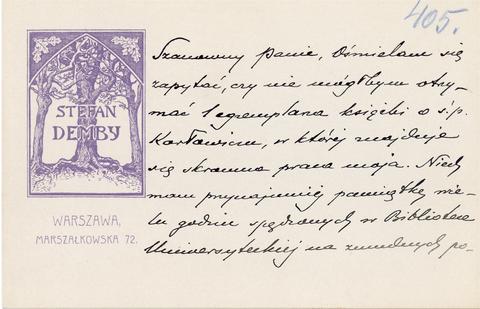 405.
STEFAN
DEMBY
WARSZAWA,
MARSZAŁKOWSKA 72.
Szanowny Panie, Ośmielam się
zapytać, czy nie mógłbym otrzy-
mać 1 egzemplarza książki o ś.p.
Karłowiczu, w której znajduje
się skromna praca moja. Niech
mam przynajmniej pamiątkę wie-
lu godzin spędzonych w Bibliotece
Uniwersyteckiej na żmudnych po-